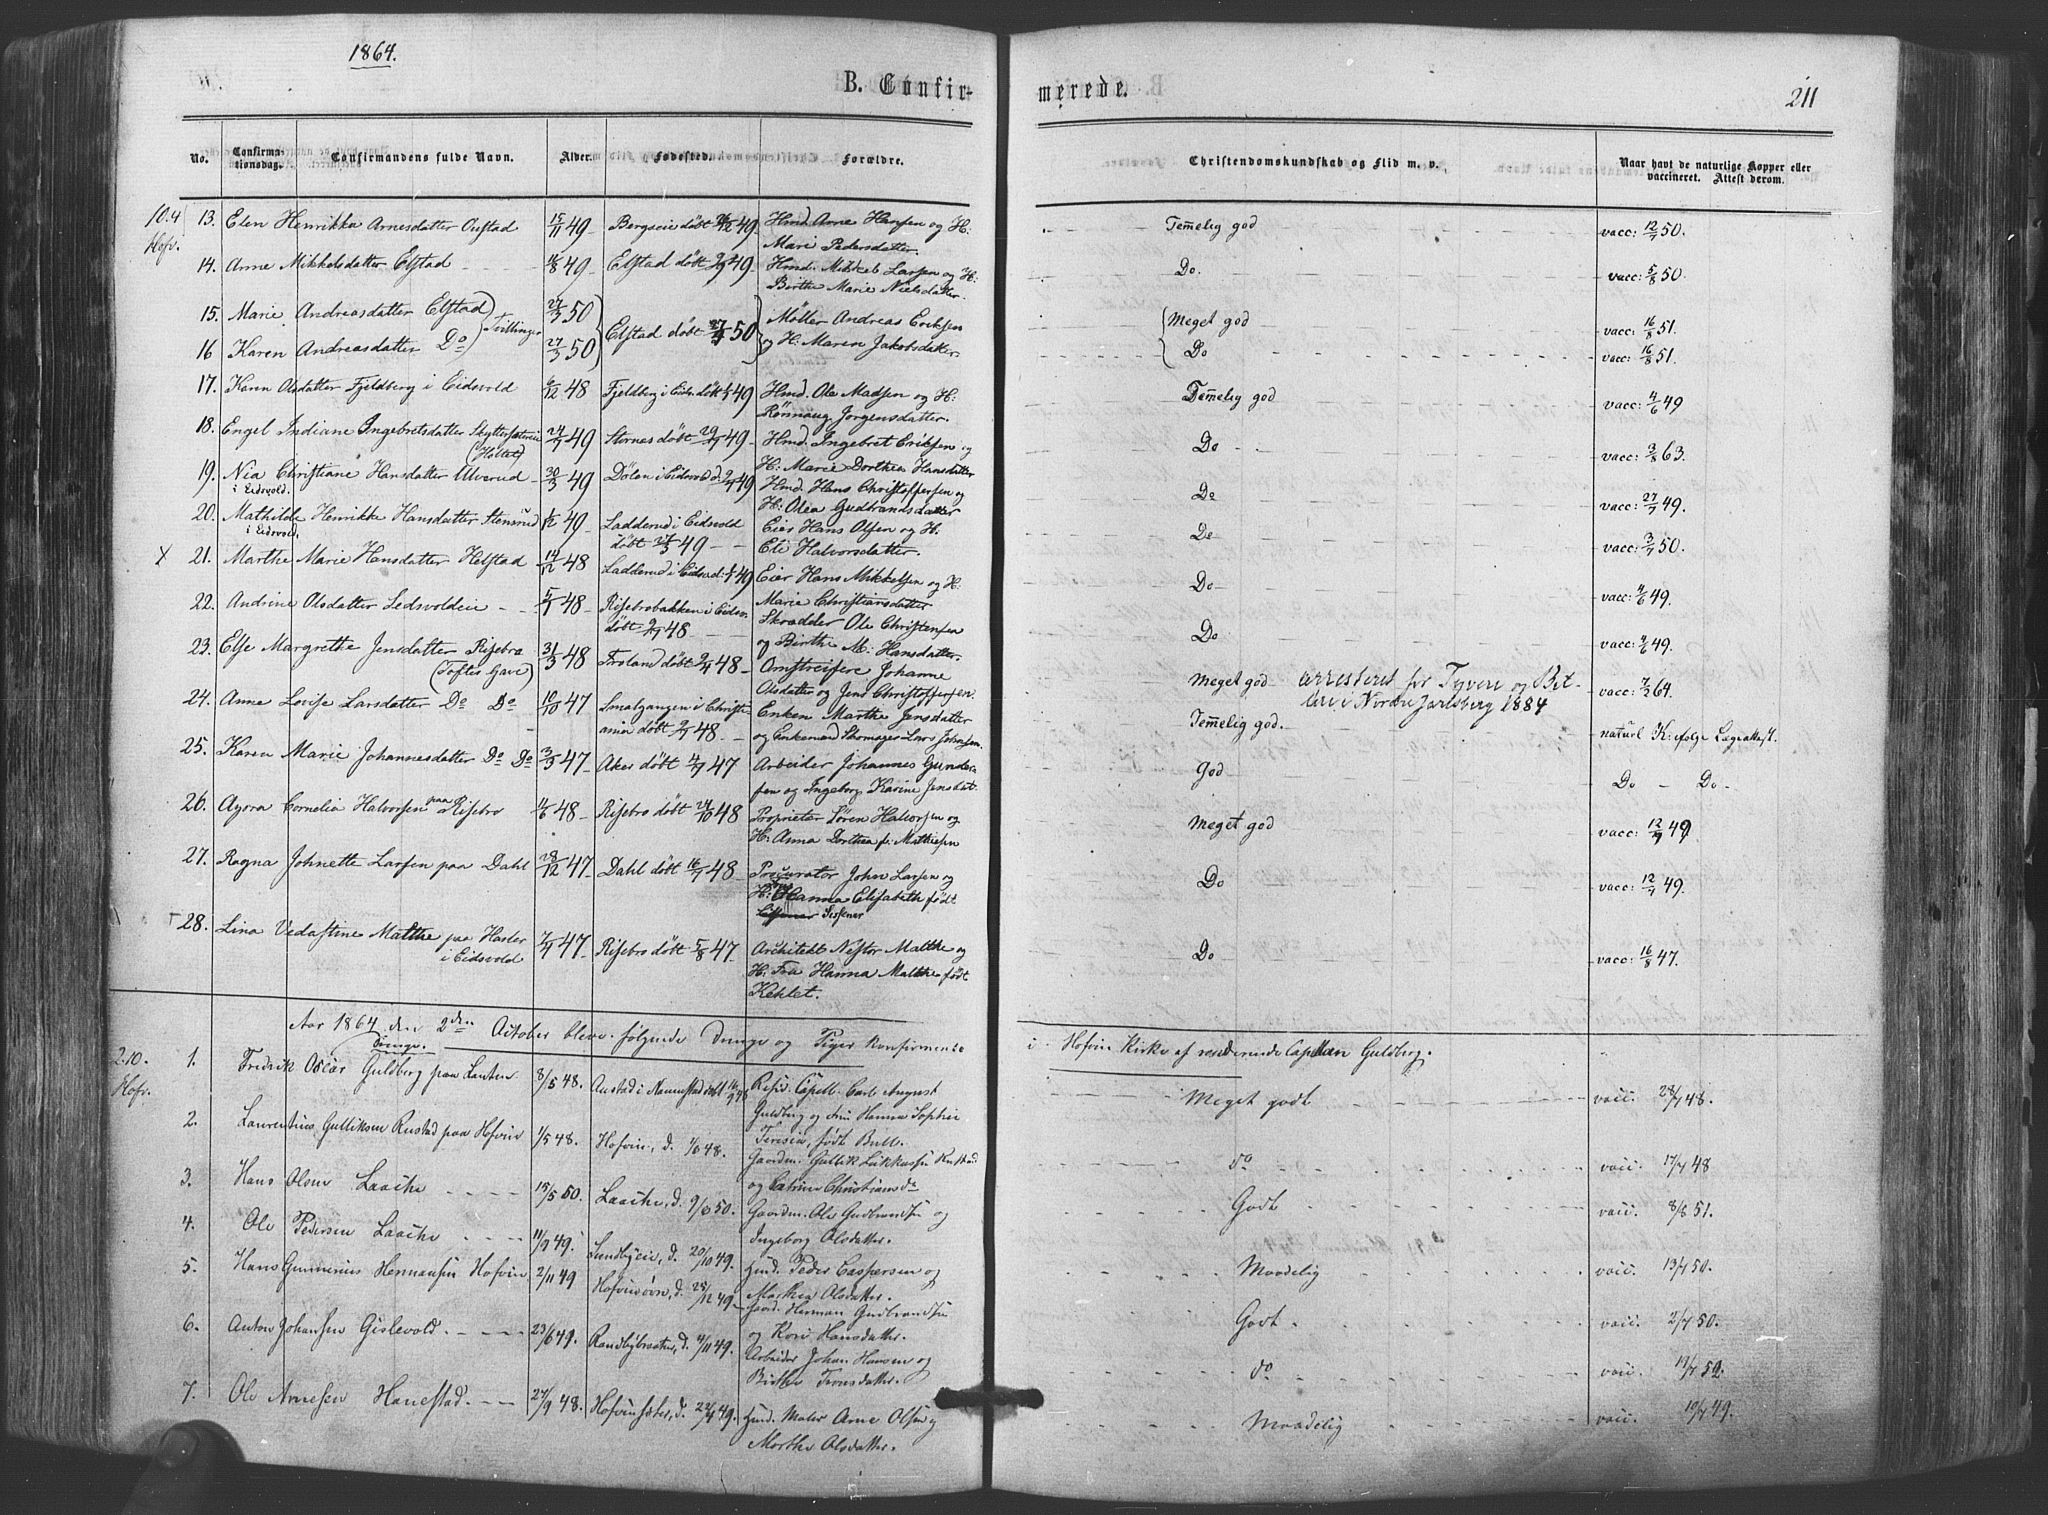 1864.
B. Confir-
merede.
211
No.
Confirma-
tionsdag.
Confirmandens fulde Navn.
Alder.
Fødested.
Forældre.
Christendomskundskab og Flid m. v.
Naar havt de naturlige Kopper eller
vaccineret. Attest derom.
10.4 13. Elen Henrikka Arnesdatter 15/11 49 Bergseie døbt 49 Hmd Arne Hansen og H: Temmelig god vacc: 12/7 50.
Hofv. Mari Pedersdatter.
14. Anne Mikkelsdatter Elstad 49 Elstad døbt 49 Hmd. Mikkel Larsen og H: Do. vacc: 5/8 50.
Birthe Marie Nielsdatter.
15. Marie Andreasdatter Elstad 27/3 50 Møller Andreas Eriksen Meget god vacc: 16/8 51.
Tvillinger Elstad døbt 50
16 Karen Andreasdatter Do 27/3 50 og H: Maren Jakobsdatter Do vacc: 16/8 51.
17. Karen Olsdatter Fjeldberg i Eidsvold 6/12 48 Fjeldberg i Eidsv. døbt 49 Hmd. Ole Madsen og H: Temmelig god vacc: 4/6 49
Rønnaug Jørgensdatter.
18. Engel Indiane Ingebretsdatter 49 Stornes døbt 49 Hmd. Ingebret Eriksen og Do vacc: 3/8 63.
(Holtet) H: Marie Dorthea Hansdatter
19. Nia Christiane Hansdatter Ulverud 30/3 49 Dølen i Eidsvold d. 49 Hmd. Hans Christoffersen og Do vacc: 27/7 49.
i Eidsvold. H: Olea Gudbrandsdatter
20. Mathilde Henrikke Hansdatter Stensrud 49 Ladderud i Eidsvold Eier Hans Olsen og H: Do vacc: 3/7 50.
i Eidsvold. døbt 27/3 49 Eli Halvorsdatter.
X 21. Marthe Marie Hansdatter Helstad 14/12 48 Ladderud i Eidsvold 49 Eier Hans Mikkelsen og H: Do vacc: 4/6 49.
Marie Christiansdatter
22. Andrine Olsdatter Ledsvoldeie 48 Risebrobakken i Eidsv. Skrædder Ole Christensen Do vacc: 4/6 49.
døbt 48 og Birthe M. Hansdatter.
23. Else Margrethe Jensdatter Risebro 31/3 48 Froland døbt 48 Omstreifere Johanne Meget god arresteret for Tyveri og Bet- vacc: 7/3 64.
(Toftes Gave) Olsdatter og Jens Christoffersen. leri i Nordre Jarlsberg 1884
24. Anne Lovise Larsdatter Do Do 10/10 47 Smalgangen i Christi- Enken Marthe Jensdatter Temmelig god. naturl K: ifølge Lægeattest.
ania døbt 48 og Enkemand Skomager Lars Johnsen.
25. Karen Marie Johannesdatter Do Do 3/3 47 Aker døbt 47 Arbeider Johannes Gunder- God Do - Do -
sen og Ingeborg Karine Jensdat.
26. Agora Cornelia Halvorsen paa Risebro 48 Risebro døbt 24/10 48 Proprietær Søren Halvorsen og Meget god vacc: 12/9 49
H: Anna Dorthea f: Mathiesen
27. Ragna Johnette Larsen paa Dahl 28/12 47 Dahl døbt 16/7 48 Procurator John Larsen og Do vacc: 12/7 49.
H: Hanna Elisabeth født
Sissener
28. Lina Vedastine Malthe paa Hasler 47 Risebro døbt 5/8 47 Architekt Nestor Malthe og Do vacc: 16/8 47.
i Eidsvold H: Fru Hanna Malthe født
Kehlet.
Aar 1864 den 2den October bleve følgende Drenge og Piger konfirmerede i Hofvin Kirke af residerende Capellan Guldberg.
Drenge.
2.10. 1. Fredrik Oscar Guldberg paa Lauten 8/5 48. Austad i Nannestad døbt Resid. Capell. Carl August Meget godt vacc. 28/7 48.
Hofv. Guldberg og Fru Hanna Sophie
2. Laurentius Gulliksen Rustad paa Hofvin 1/5 48. Hofvin, d. 1/6 48. Teresia, født Bull. do vacc. 17/7 48
Gaardm. Gullik Lukkassen Rustad
3. Hans Olsen Laache 15/5 50. Laache, d. 9/6 50. og Catrine Christiansda Godt vacc. 8/8 51.
Gaardm. Ole Gudbrandsen og
4. Ole Pedersen Laache 11/9 49. Sundbyeie, d. 20/10 49. Ingeborg Olsdatter. Maadelig vacc. 13/7 50.
Hmd. Peder Caspersen og
5. Hans Gunnerius Hermansen Hofvin 2/11 49 d. 25/12 49. Marthea Olsdatter. Godt vacc. 2/7 50.
Gaard. Herman Gudbrandsen
6. Anton Johansen Gislevold 23/6 49. d. 4/11 49. og Kari Hansdatter. do vacc. 19/7 52.
Arbeider Johan Hansen og
Birthe Tronsdatter.
7. Ole Arnesen Hanestad 27/9 48. d. 22/4 49. Hmd. Maler Arne Olsen og Maadelig vacc. 10/7 49.
Marthe Olsdatter.